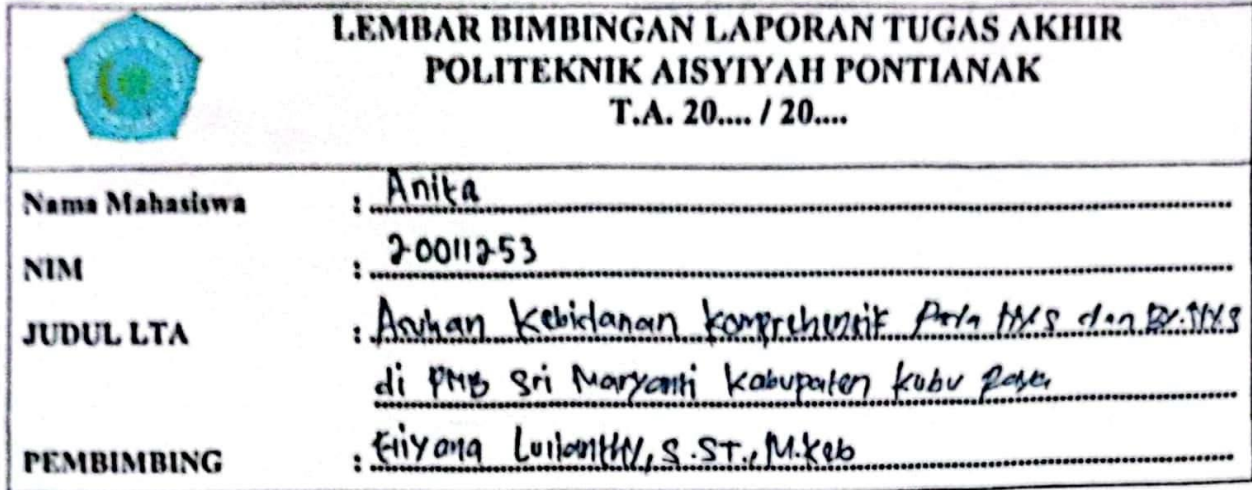 LEMBAR BIMBINGAN LAPORAN TUGAS AKHIR
POLITEKNIK AISYIYAH PONTIANAK
T.A. 20.... / 20....
Nama Mahasiswa : Anita
NIM : 20011253
JUDUL LTA : Asuhan Kebidanan Komprehensif Pada Ny.S dan By.Ny.S
di PMB Sri Maryanti Kabupaten Kubu Raya
PEMBIMBING : S.ST., M.Keb